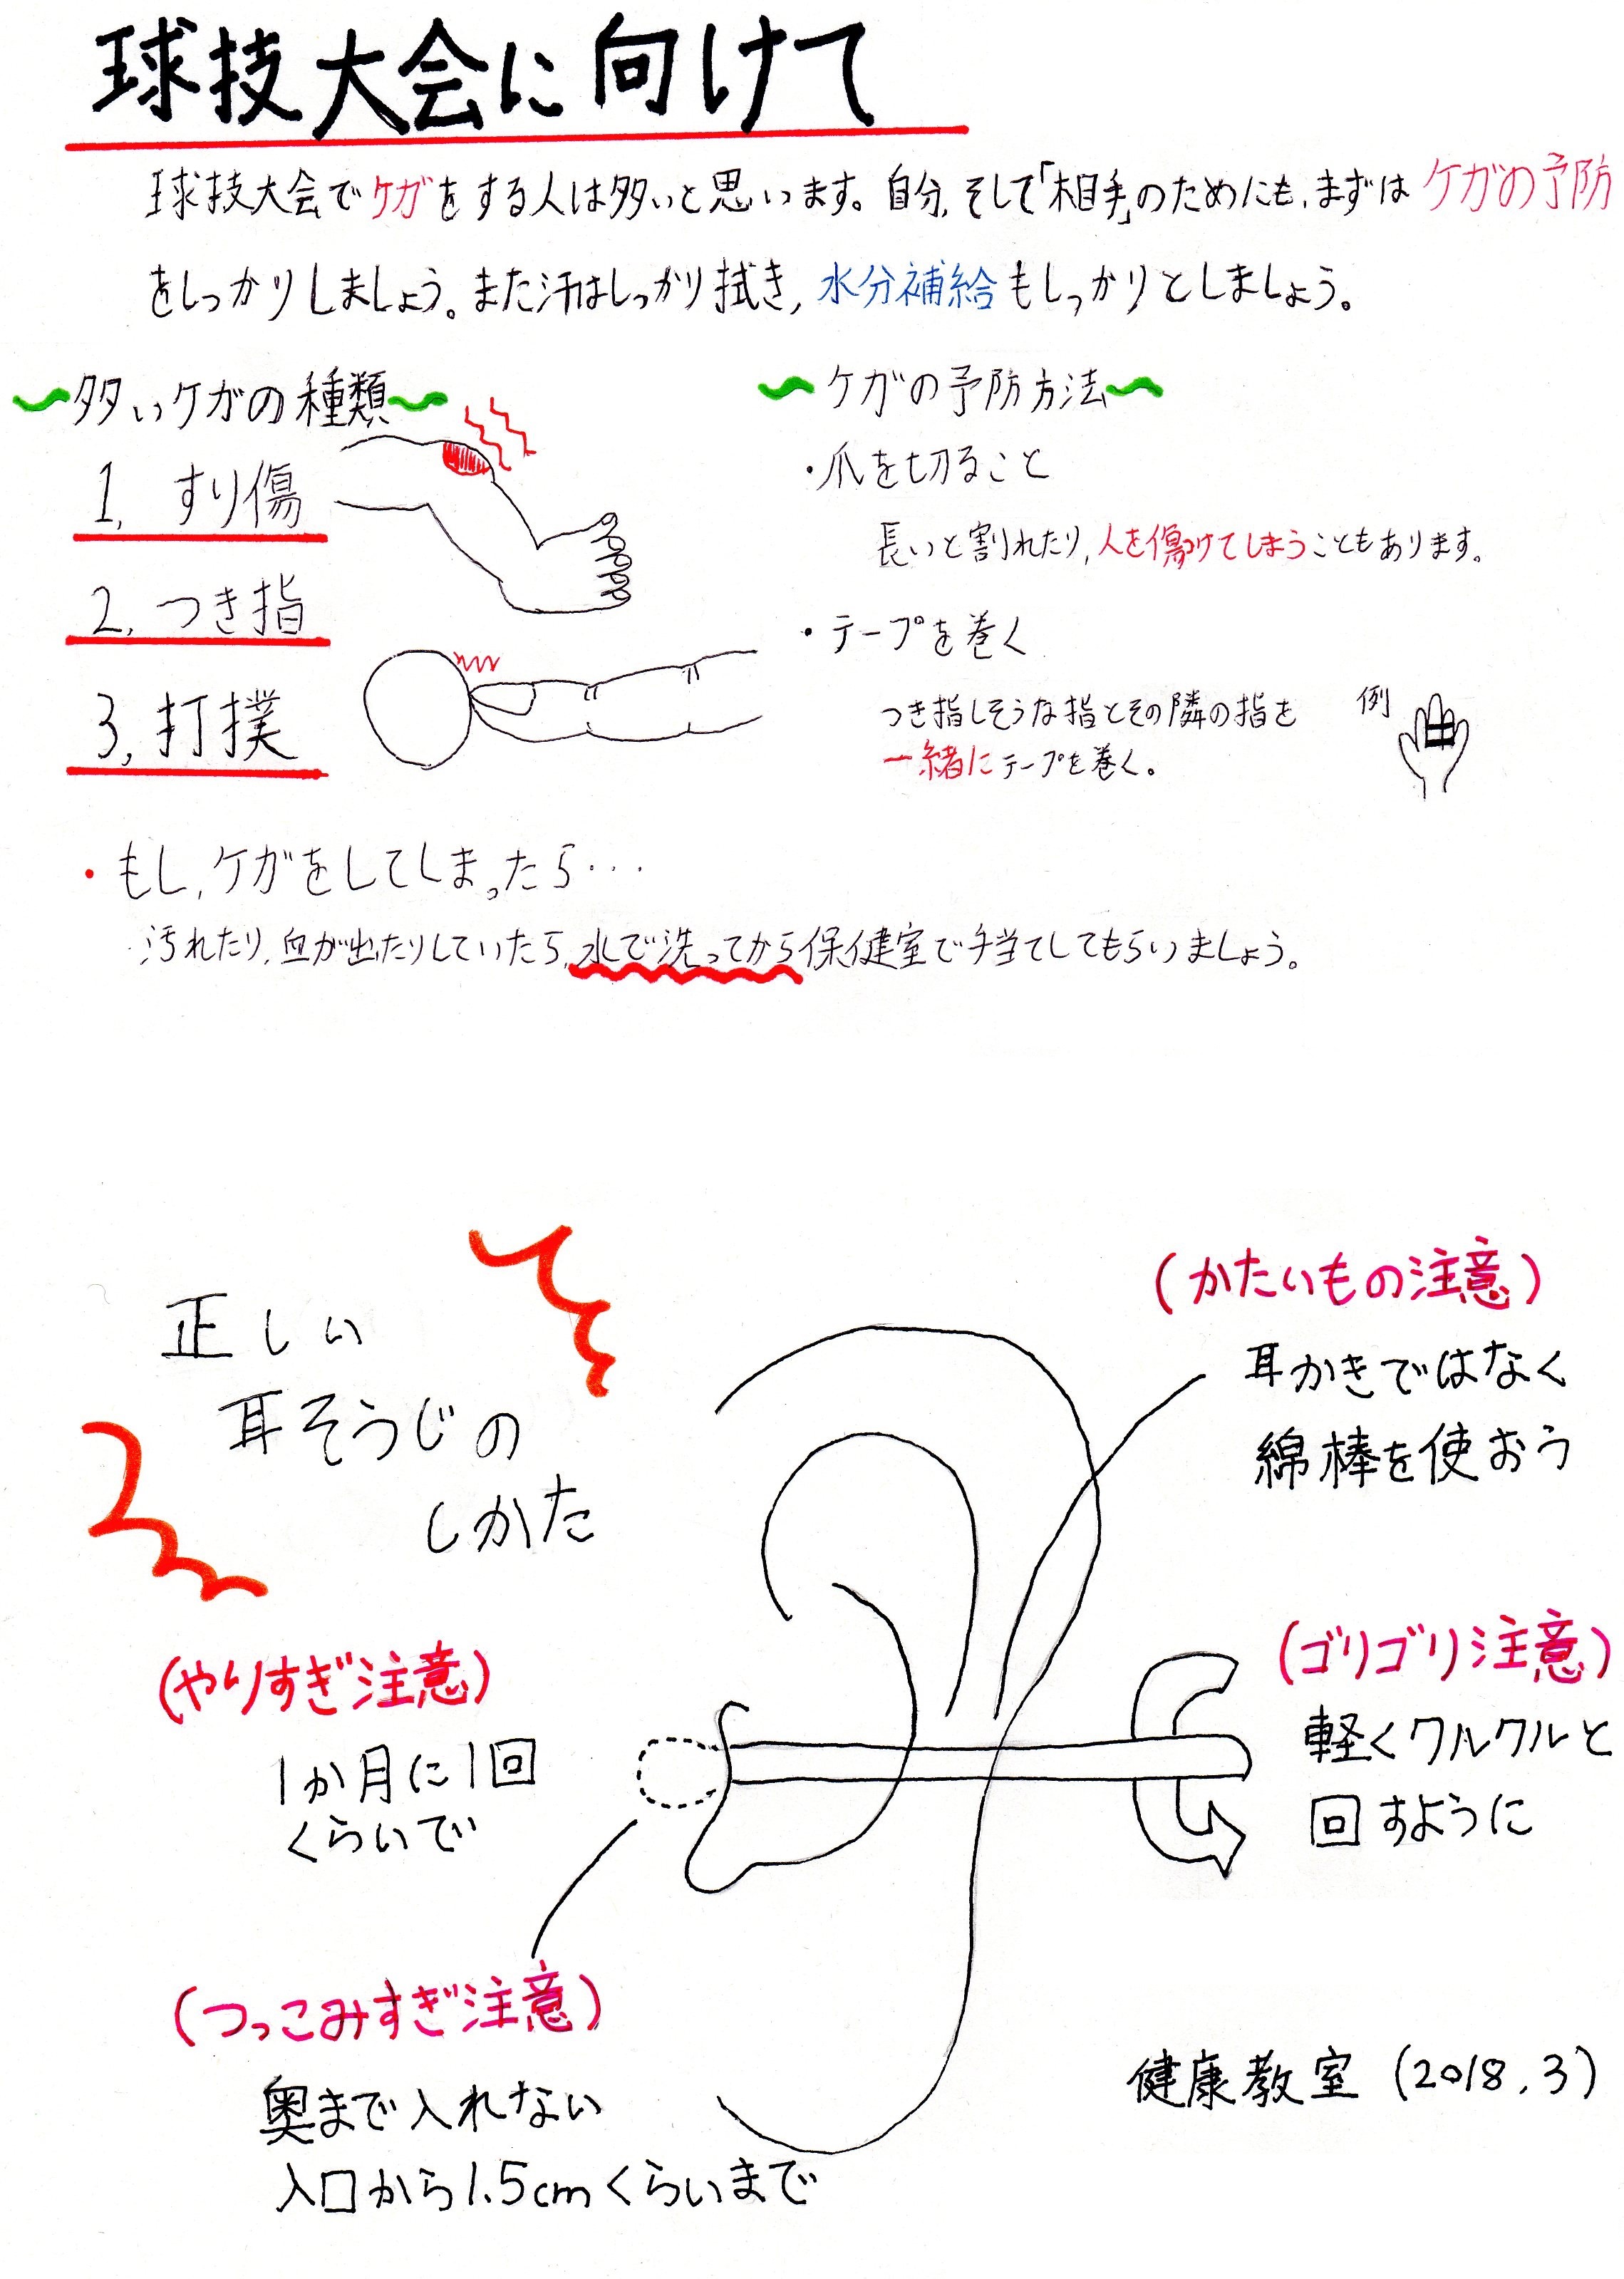 球技大会に向けて
球技大会でケガをする人は多いと思います。自分、そして「相手」のためにも、まずはケガの予防
をしっかりしましょう。また汗はしっかり拭き、水分補給もしっかりとしましょう。
〜多いケガの種類〜
1, すり傷
2, つき指
3, 打撲
〜ケガの予防方法〜
・爪を切ること
長いと割れたり、人を傷つけてしまうこともあります。
・テープを巻く
つき指しそうな指とその隣の指を
一緒にテープを巻く。
例
・もし、ケガをしてしまったら…
汚れたり、血が出たりしていたら、水で洗ってから保健室で手当てしてもらいましょう。
正しい
耳そうじの
しかた
(かたいもの注意)
耳かきではなく
綿棒を使おう
(やりすぎ注意)
1か月に1回
くらいで
(ゴリゴリ注意)
軽くクルクルと
回すように
(つっこみすぎ注意)
奥まで入れない
入口から1.5cmくらいまで
健康教室 (2018.3)